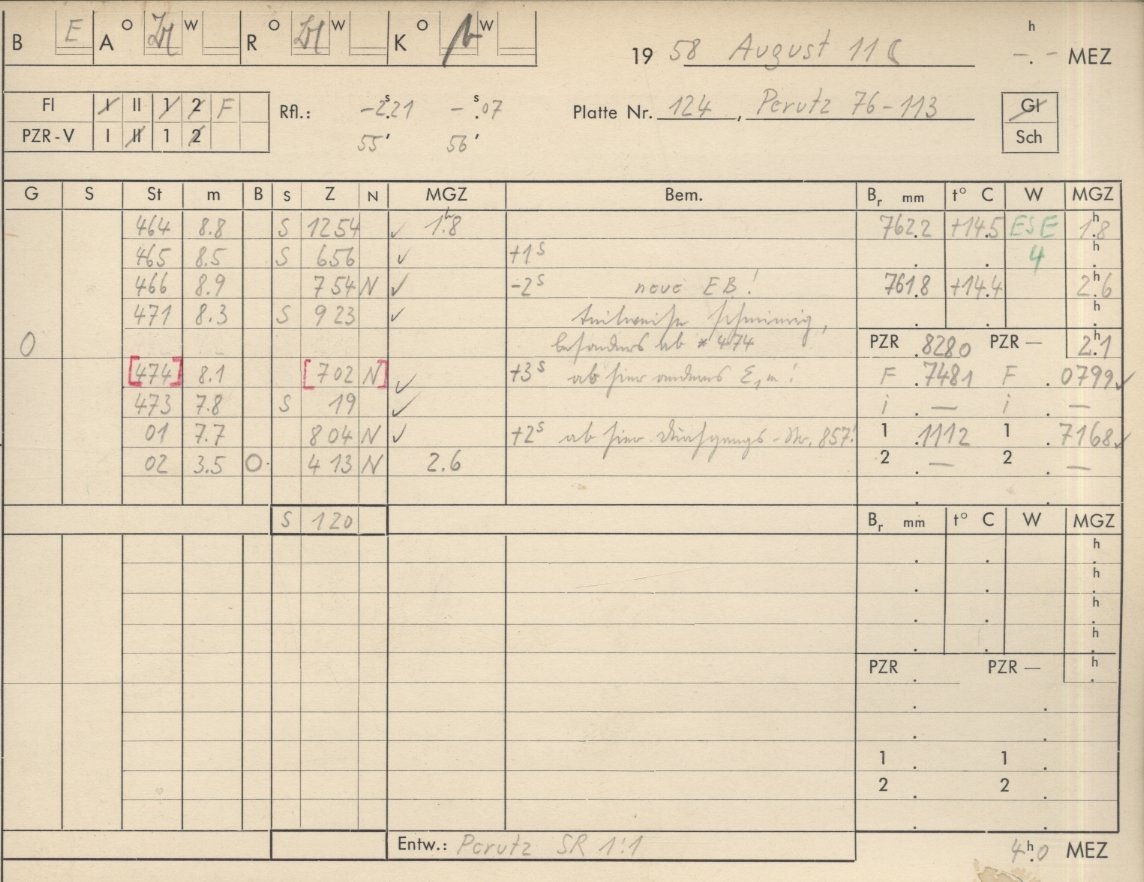 B E A O W R O W K O W
19 58 August 11 h -.- MEZ
Fl I II 1 2 F
PZR-V I II 1 2
Rfl.: -2.s21 -.s07
55' 56'
Platte Nr. 124, Perutz 76-113
Gl
Sch
G S St m B S Z N MGZ Bem. Br mm t° C W MGZ
464 8.8 S 1254 ✓ 1.h8 762.2 +14.5 ESE 1.h8
465 8.5 S 656 ✓ +1s 4 h
466 8.9 754 N ✓ -2s neue EB! 761.8 +14.4 2.h6
471 8.3 S 923 ✓ teilweise schmierig, h
0 besonders ab * 474 PZR .8280 PZR — 2.1
[474] 8.1 [702 N] ✓ +3s ab hier anderes E, m! F .7481 F .0799 ✓
473 7.8 S 19 ✓ i — i —
01 7.7 804 N ✓ +2s ab hier Durchgangs-Nr. 857! 1 .1112 1 .7168 ✓
02 3.5 O 413 N 2.6 2 — 2 —
S 120 Br mm t° C W MGZ
h
h
h
h
PZR . PZR — h
1 1
2 2
Entw.: Perutz SR 1:1 4h.0 MEZ